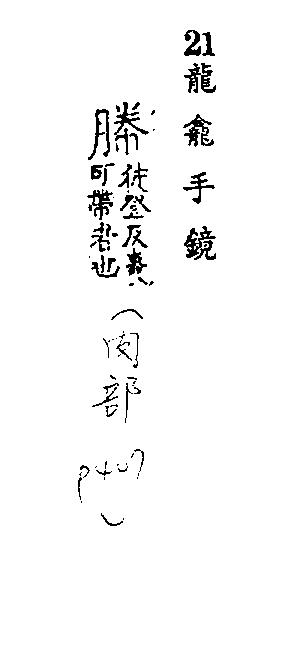 21龍龕手鏡
幐徒登反囊
可帶者也
(肉部 P407)